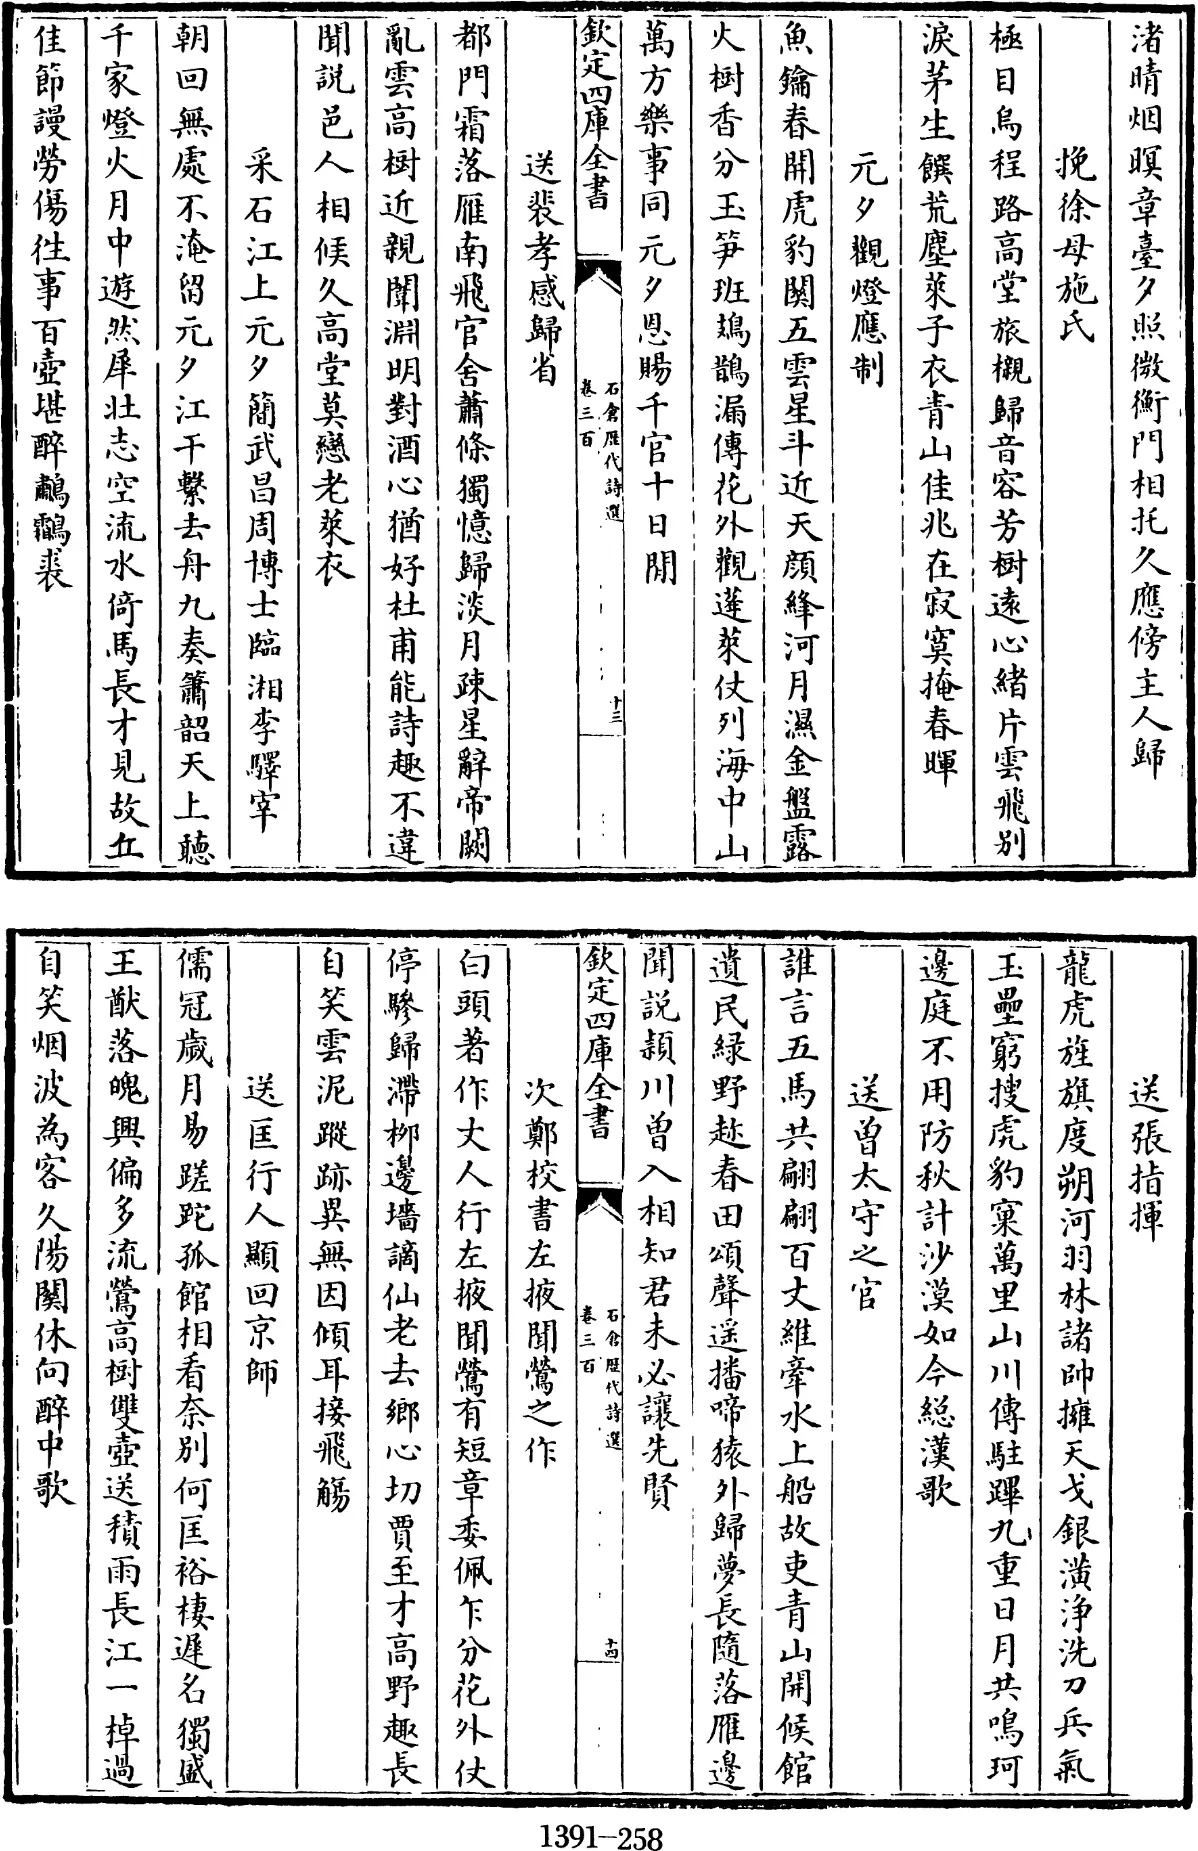 渚晴烟暝章臺夕照微衡門相托久應傍主人歸
挽徐母施氏
極目烏程路高堂旅櫬歸音容芳樹遠心緒片雲飛别
淚茅生饌荒塵萊子衣青山佳兆在寂寞掩春暉
元夕觀燈應制
魚鑰春開虎豹關五雲星斗近天顔絳河月濕金盤露
火樹香分玉笋班鳷鵲漏傳花外觀蓬萊仗列海中山
萬方樂事同元夕恩賜千官十日閒
欽定四庫全書
石倉歷代詩選
卷三百
十三
送裴孝感歸省
都門霜落雁南飛官舍蕭條獨憶歸淡月疎星辭帝闕
亂雲高樹近親闈淵明對酒心猶好杜甫能詩趣不違
聞說邑人相候久高堂莫戀老萊衣
采石江上元夕簡武昌周博士臨湘李驛宰
朝回無處不淹留元夕江干繫去舟九奏簫韶天上聽
千家燈火月中遊然犀壯志空流水倚馬長才見故丘
佳節謾勞傷徃事百壺堪醉鷫鸘裘
送張指揮
龍虎旌旗度朔河羽林諸帥擁天戈銀潢浄洗刀兵氣
玉壘窮搜虎豹窠萬里山川傳駐蹕九重日月共鳴珂
邊庭不用防秋計沙漠如今總漢歌
送曾太守之官
誰言五馬共翩翩百丈維牽水上船故吏青山開候館
遺民緑野趂春田頌聲遥播啼猿外歸夢長隨落雁邊
聞說潁川曾入相知君未必讓先賢
欽定四庫全書
石倉歷代詩選
卷三百
十四
次鄭校書左掖聞鶯之作
白頭著作丈人行左掖聞鶯有短章委佩乍分花外仗
停驂歸滯柳邊墻謫仙老去鄉心切賈至才高野趣長
自笑雲泥蹤跡異無因傾耳接飛觴
送匡行人顯回京師
儒冠歲月易蹉跎孤館相看奈别何匡裕棲遲名獨盛
王猷落魄興偏多流鶯高樹雙壺送積雨長江一棹過
自笑烟波為客久陽關休向醉中歌
1391-258